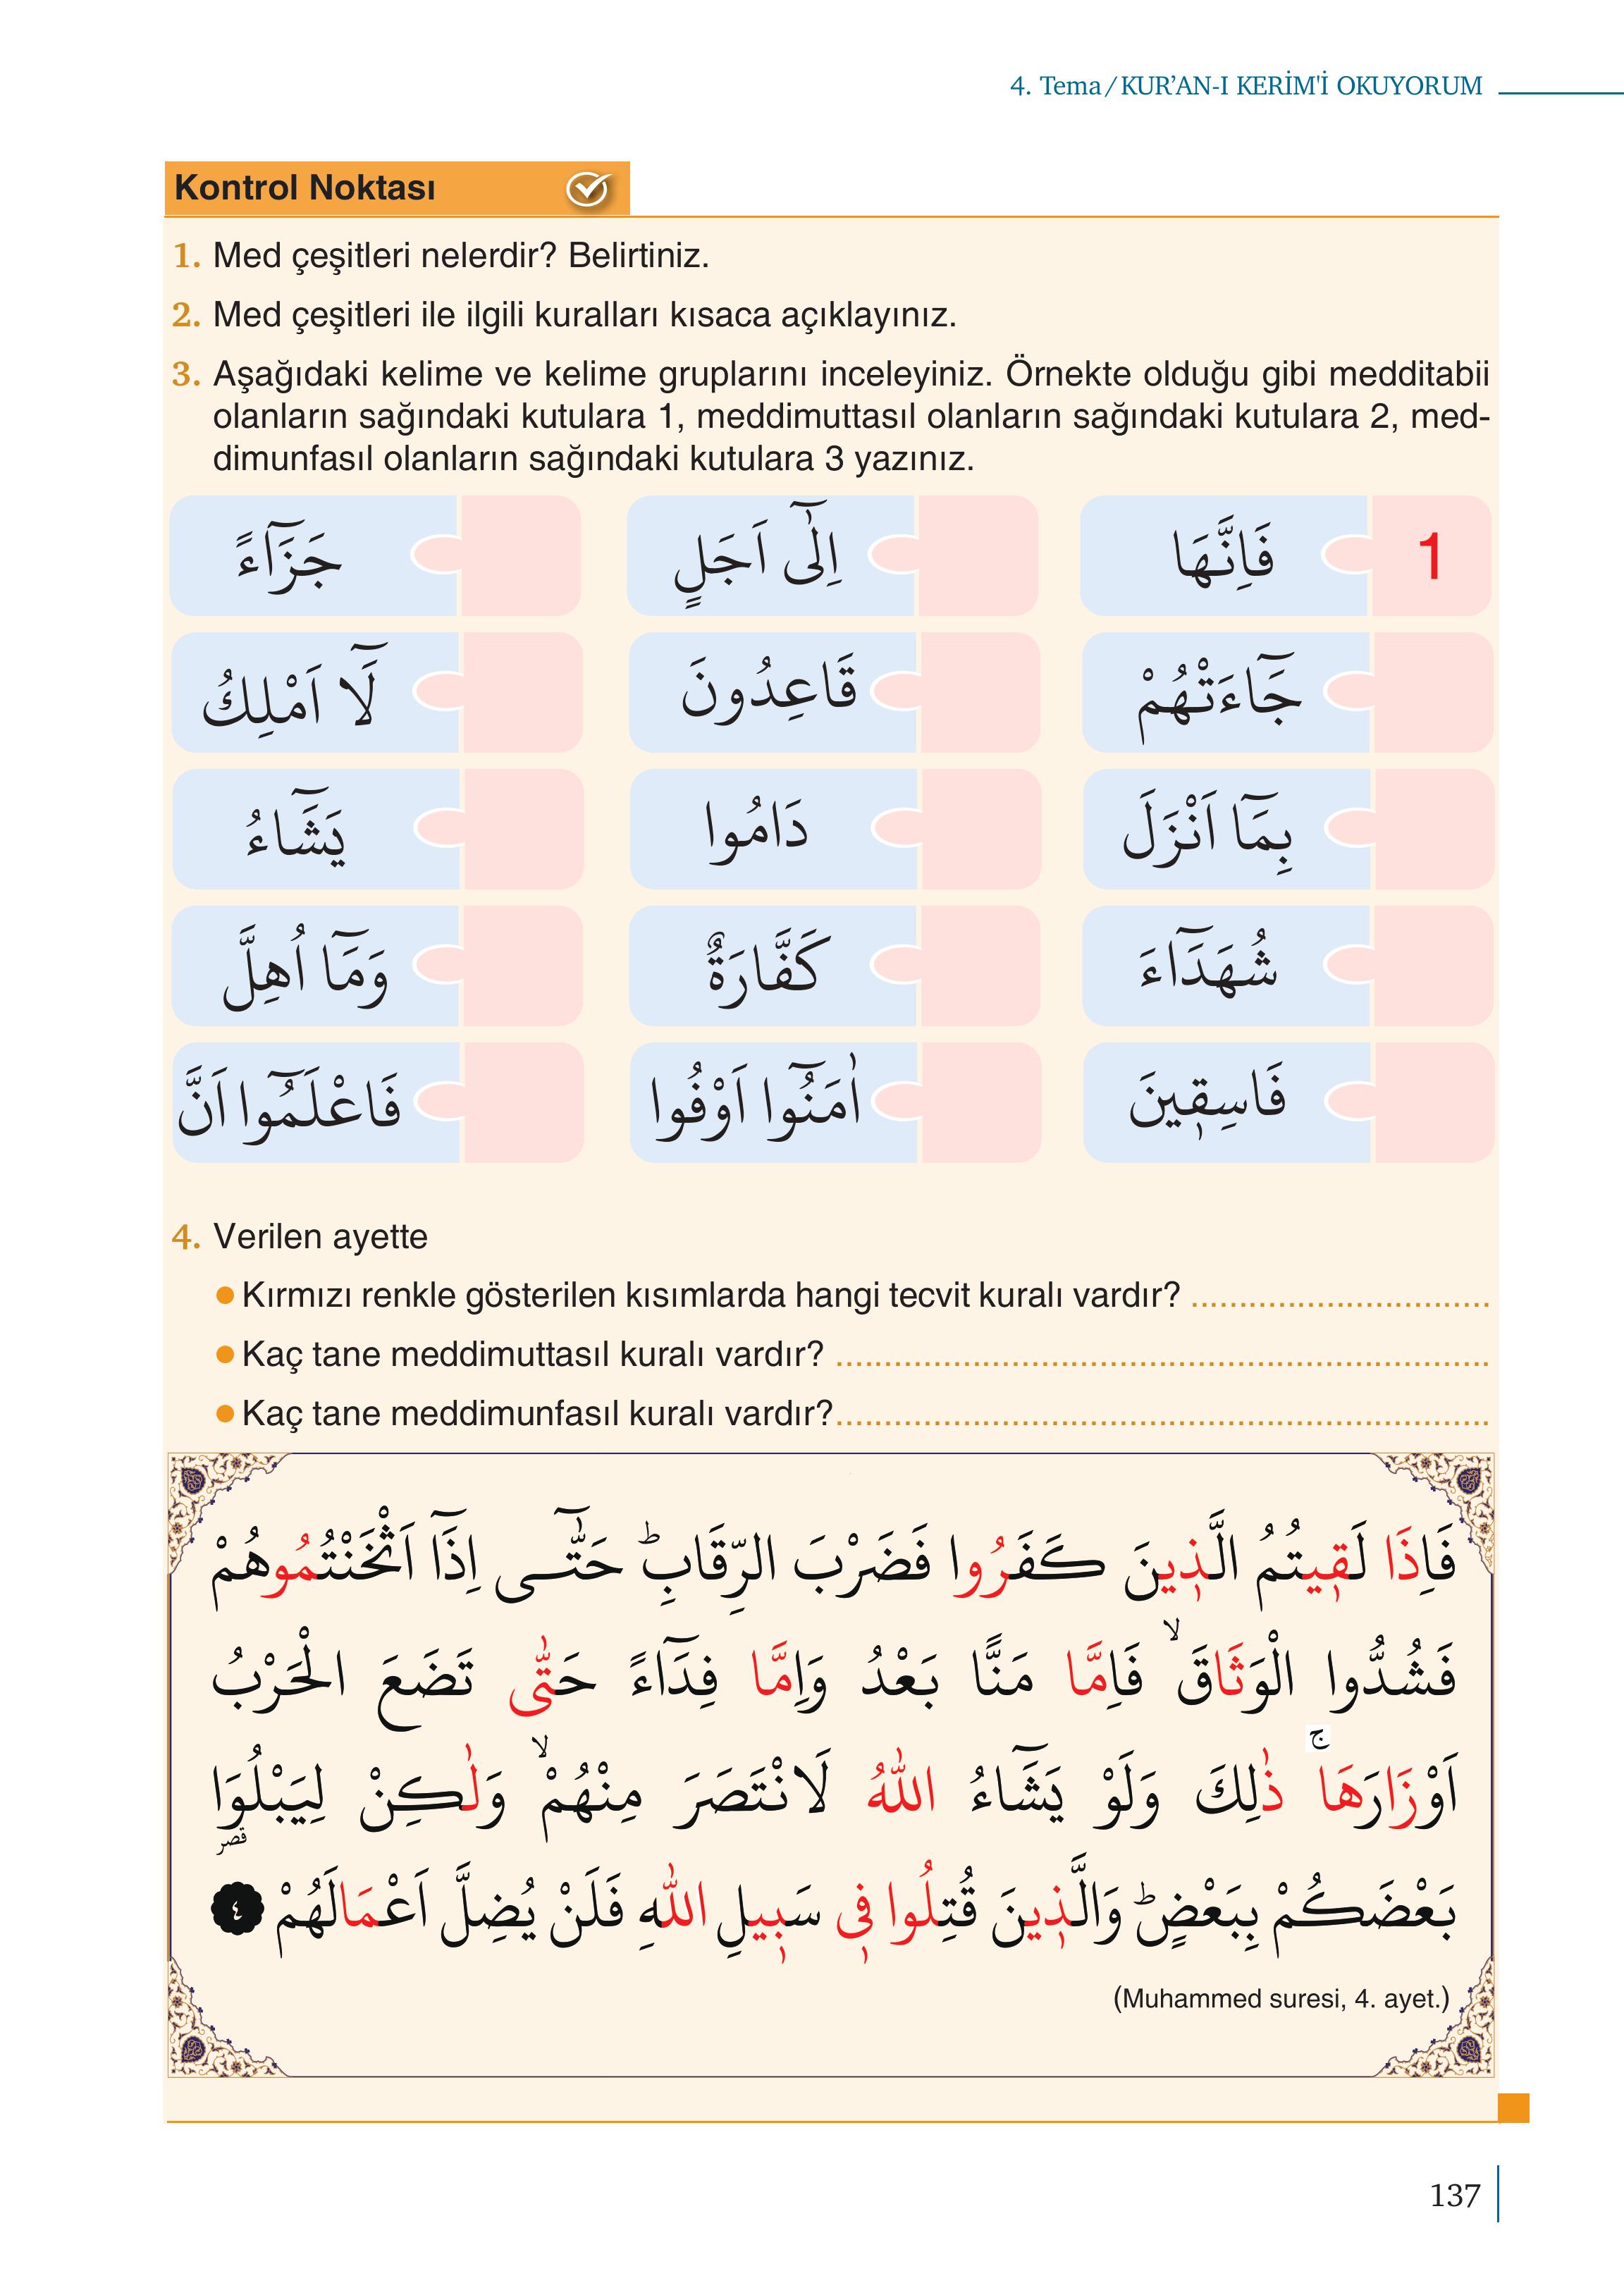 4. Tema / KUR’AN-I KERİM'İ OKUYORUM
Kontrol Noktası
1. Med çeşitleri nelerdir? Belirtiniz.
2. Med çeşitleri ile ilgili kuralları kısaca açıklayınız.
3. Aşağıdaki kelime ve kelime gruplarını inceleyiniz. Örnekte olduğu gibi medditabii
olanların sağındaki kutulara 1, meddimuttasıl olanların sağındaki kutulara 2, med-
dimunfasıl olanların sağındaki kutulara 3 yazınız.
1 فَاِنَّهَا
اِلٰٓى اَجَلٍ
جَزَٓاءً
جَٓاءَتْهُمْ
قَاعِدُونَ
لَٓا اَمْلِكُ
بِمَٓا اَنْزَلَ
دَامُوا
يَشَٓاءُ
شُهَدَٓاءَ
كَفَّارَةٌ
وَمَٓا اُهِلَّ
فَاسِقٖينَ
اٰمَنُٓوا اَوْفُوا
فَاعْلَمُٓوا اَنَّ
4. Verilen ayette
● Kırmızı renkle gösterilen kısımlarda hangi tecvit kuralı vardır? ...............................
● Kaç tane meddimuttasıl kuralı vardır? ....................................................................
● Kaç tane meddimunfasıl kuralı vardır?....................................................................
فَاِذَا لَقٖيتُمُ الَّذٖينَ كَفَرُوا فَضَرْبَ الرِّقَابِؕ حَتّٰٓى اِذَٓا اَثْخَنْتُمُوهُمْ
فَشُدُّوا الْوَثَاقَۙ فَاِمَّا مَنًّا بَعْدُ وَاِمَّا فِدَٓاءً حَتّٰى تَضَعَ الْحَرْبُ
اَوْزَارَهَاۚ ذٰلِكَ وَلَوْ يَشَٓاءُ اللّٰهُ لَانْتَصَرَ مِنْهُمْۙ وَلٰكِنْ لِيَبْلُوَا قصر
بَعْضَكُمْ بِبَعْضٍؕ وَالَّذٖينَ قُتِلُوا فٖى سَبٖيلِ اللّٰهِ فَلَنْ يُضِلَّ اَعْمَالَهُمْ ٤
(Muhammed suresi, 4. ayet.)
137